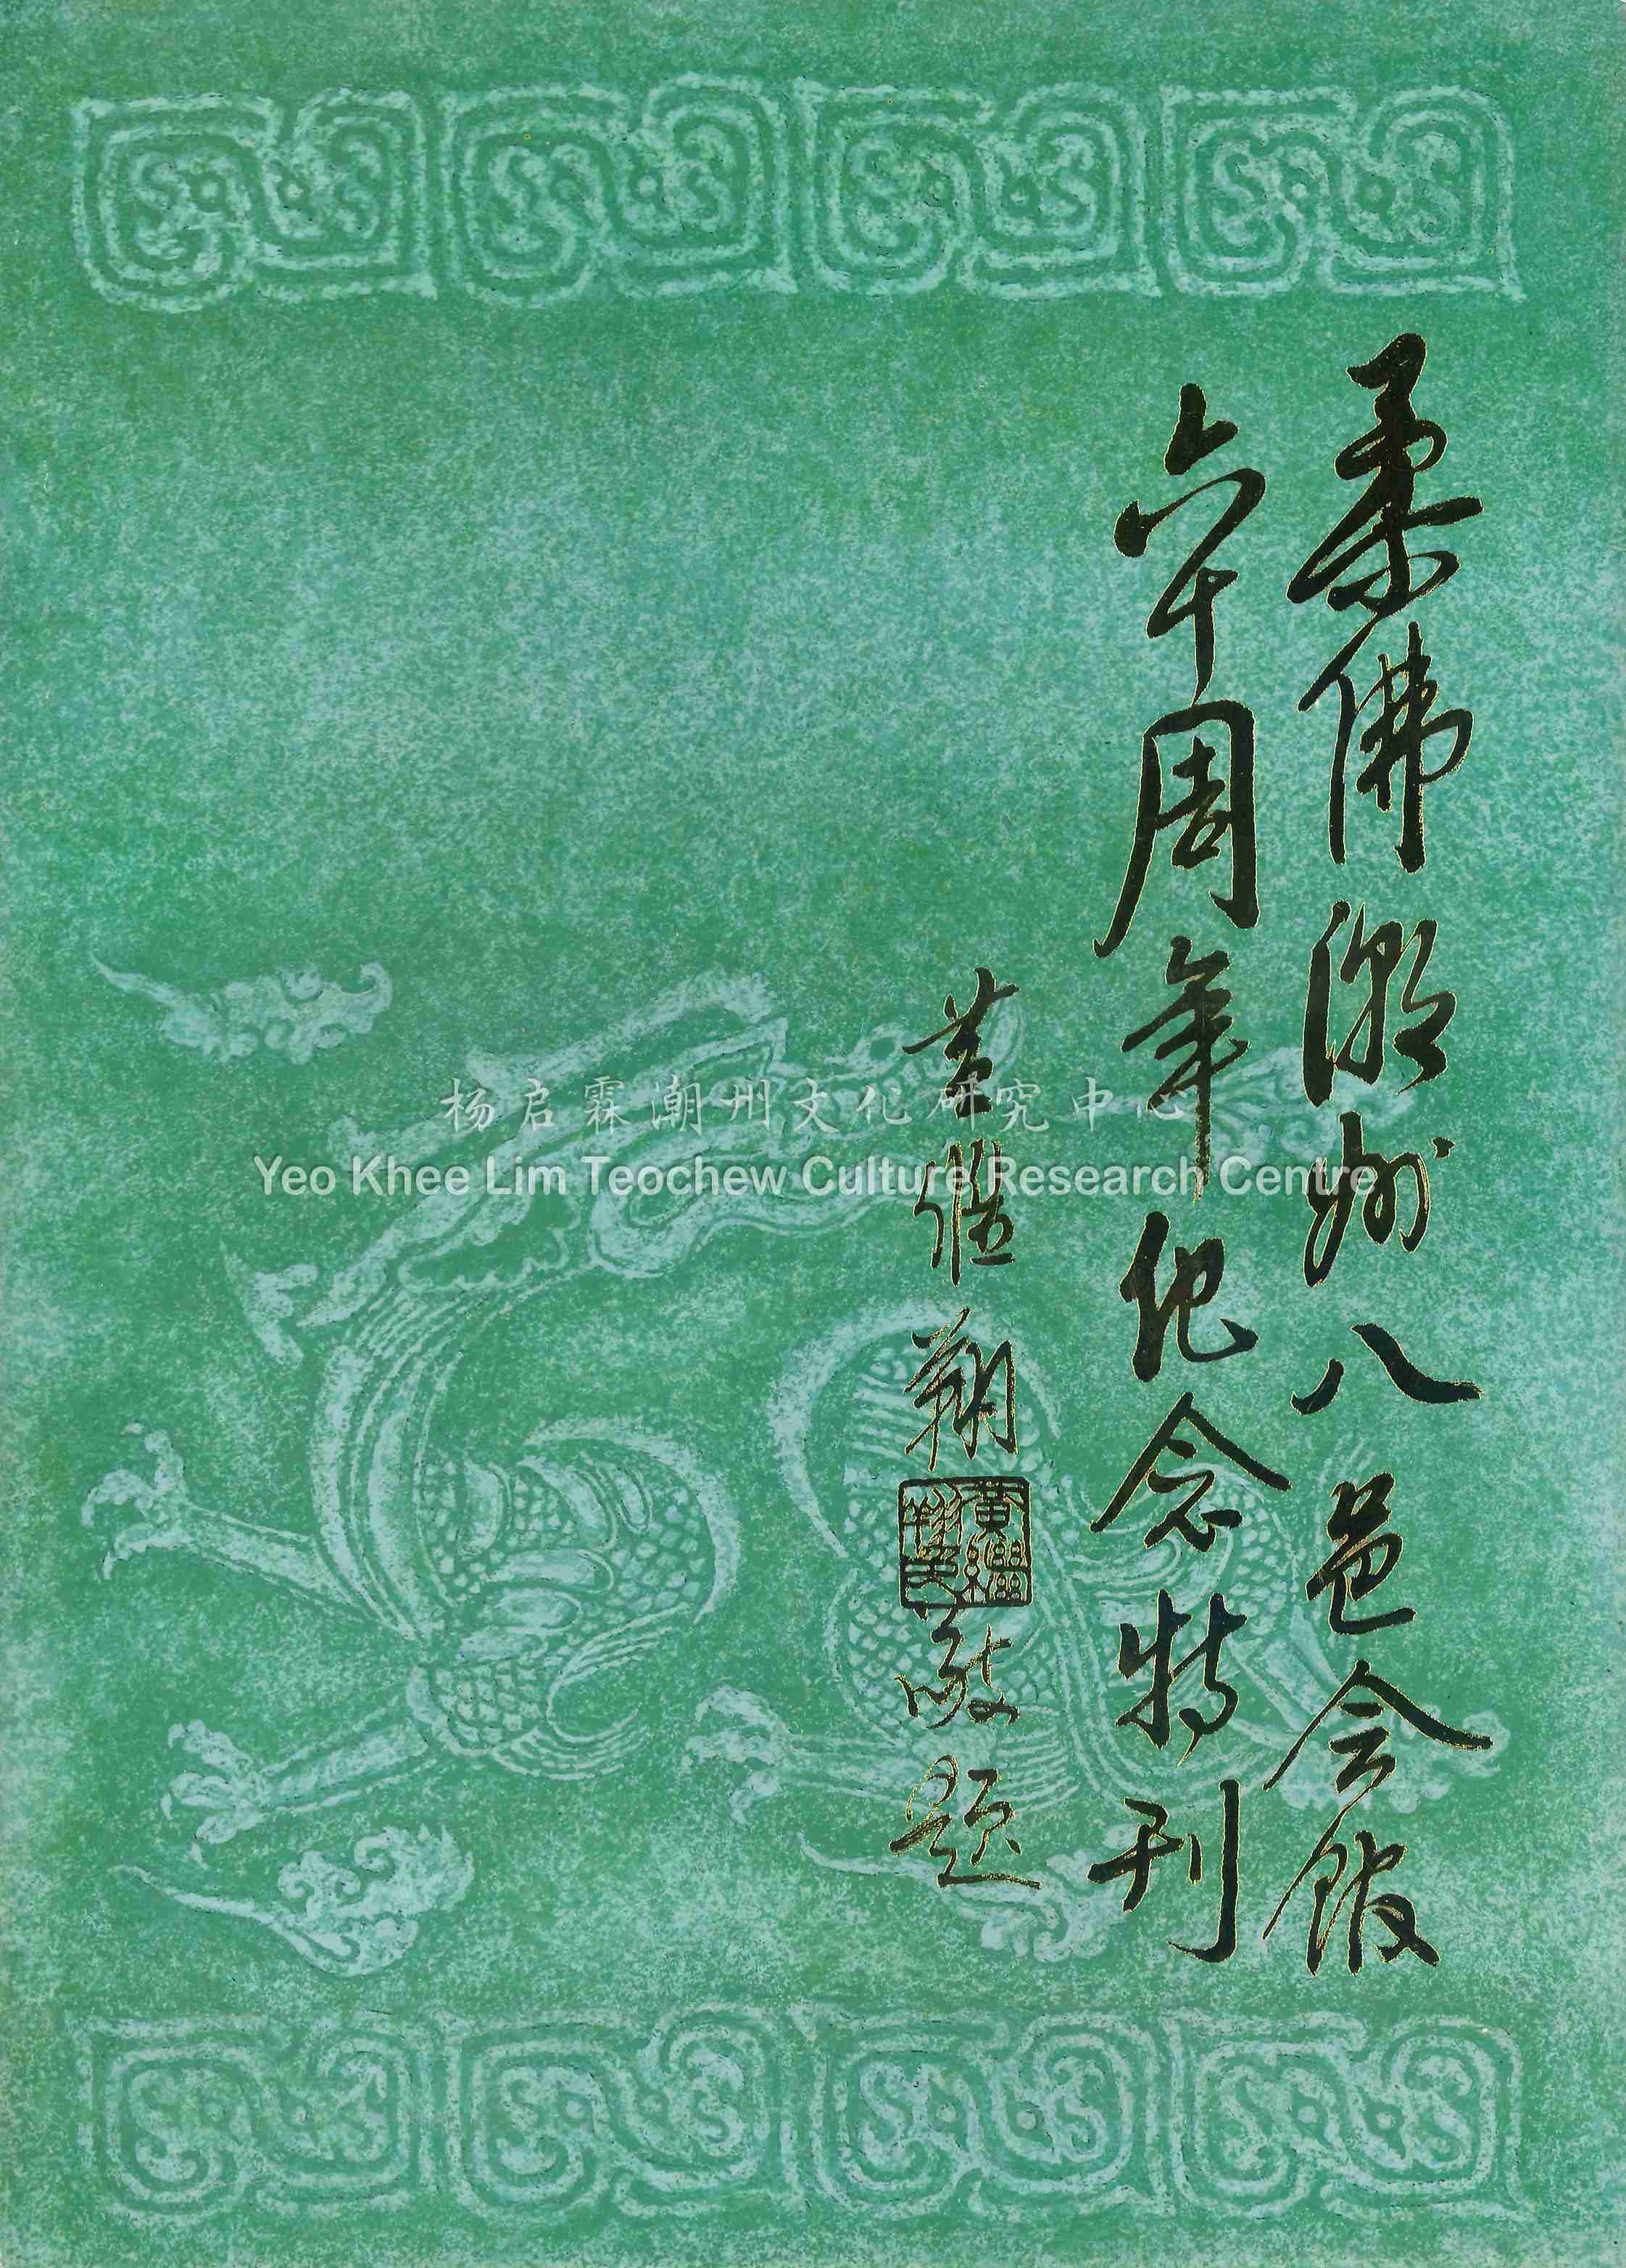 柔佛潮州八邑会馆
六十周年纪念特刊
黄继翔
黄继翔印
敬题
杨启霖潮州文化研究中心
Yeo Khee Lim Teochew Culture Research Centre